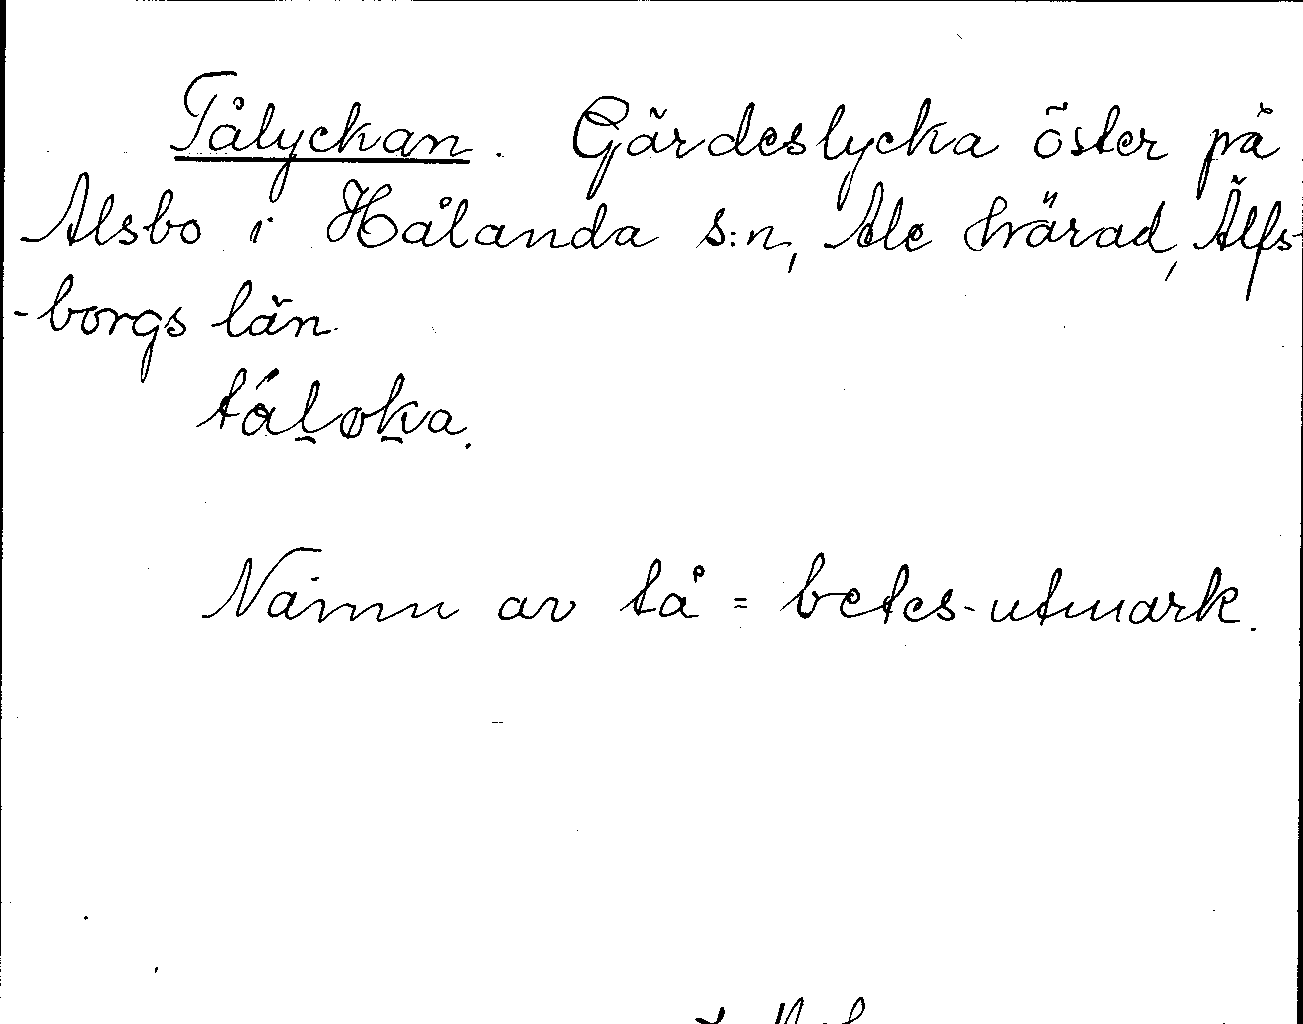 Tålyckan. Gärdeslycka öster på
Alsbo i Hålanda s:n, Ale härad, Älfs-
-borgs län
tál̲øk̲a.
Namn av tå = betes-utmark.